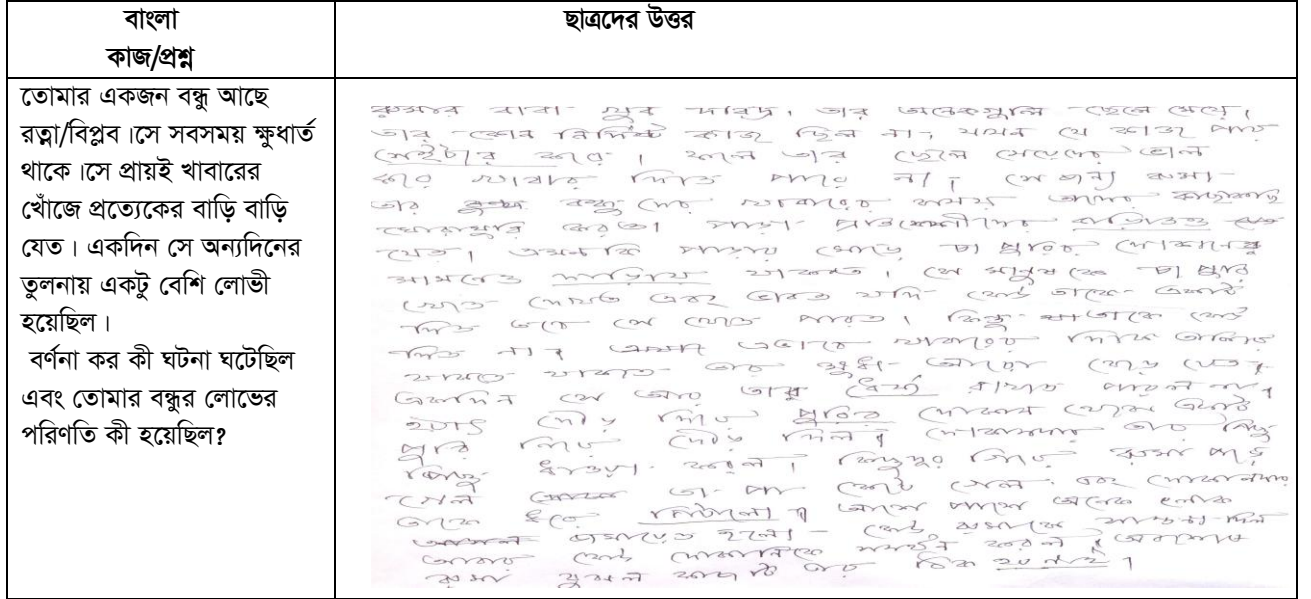 বাংলা
কাজ/প্রশ্ন
ছাত্রদের উত্তর
তোমার একজন বন্ধু আছে
রত্না/বিপ্লব।সে সবসময় ক্ষুধার্ত
থাকে।সে প্রায়ই খাবারের
খোঁজে প্রত্যেকের বাড়ি বাড়ি
যেত। একদিন সে অন্যদিনের
তুলনায় একটু বেশি লোভী
হয়েছিল।
বর্ণনা কর কী ঘটনা ঘটেছিল
এবং তোমার বন্ধুর লোভের
পরিণতি কী হয়েছিল?
বাবা খুব দরিদ্র। তার অনেকগুলি ছেলে মেয়ে।
তার কোন নির্দিষ্ট কাজ ছিল না, যখন যে কাজ পায়
সেইটার করে। ফলে তার ছেলে মেয়েদের ভাল
করে খাবার দিতে পারে না। সে জন্য
তার বন্ধুদের খাবারের সময় তাদের কাছাকাছি
ঘোরাঘুরি করতো। পাড়া প্রতিবেশীদের বাড়িতেও
যেত। এমনকি পাড়ার মোড়ে চা পুরির দোকানের
সামনেও দাড়িয়ে থাকত। সে মানুষ কে চা পুরি
খেতে দেখত এবং ভাবত যদি কেউ তাকে একটা
দিত তবে সে খেতে পারত। কিন্তু তাকে কেউ
দিত না। এভাবে খাবারের দিকে তাকিয়ে
থাকতে থাকতে তার ক্ষুধা আরো বেড়ে যেত।
একদিন সে আর তার ধৈর্য্য রাখতে পারল না।
হঠাৎ দৌড় দিয়ে পুরির দোকান থেকে একটা
পুরি নিয়ে দৌড় দিল। দোকানদার তার পিছু
পিছু ধাওয়া করল। কিছুদূর গিয়ে পড়ে
গেল তা পা কেটে গেল এবং দোকানদার
তাকে ধরে পিটালো। আশে পাশে অনেক লোক
হলো কেউ সান্ত্বনা দিল
আবার কেউ দোকানিকে সমর্থন করল। অবশেষে
বুঝল কাজটি তার ঠিক হয় নাই।